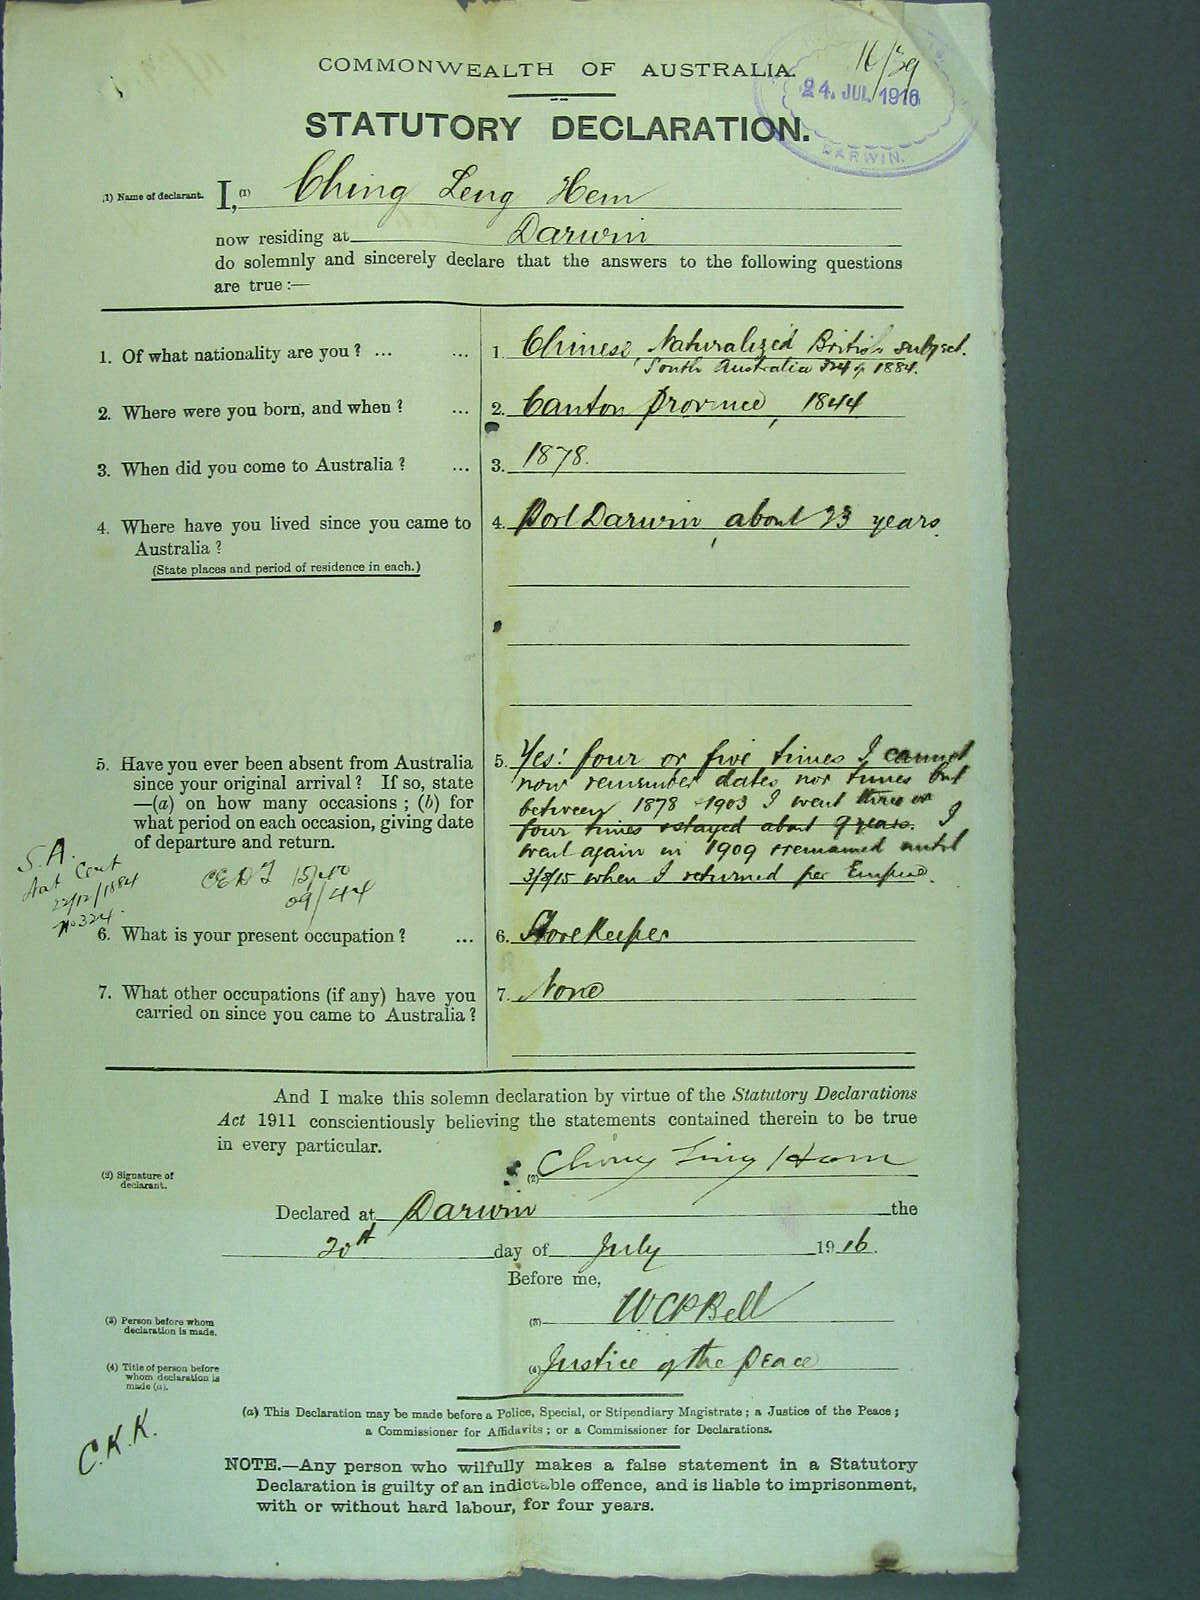 16/39
COMMONWEALTH OF AUSTRALIA.
24. JUL 1916
DARWIN.
STATUTORY DECLARATION.
(1) Name of declarant. I, (1) Ching Leng Hem
now residing at Darwin
do solemnly and sincerely declare that the answers to the following questions
are true :—
1. Of what nationality are you ? ... ... 1. Chinese, Naturalized British subject.
South Australia 324 of 1884.
2. Where were you born, and when ? ... 2. Canton Province, 1844
3. When did you come to Australia ? ... 3. 1878.
4. Where have you lived since you came to 4. Port Darwin, about 23 years.
Australia ?
(State places and period of residence in each.)
5. Have you ever been absent from Australia
since your original arrival ? If so, state
—(a) on how many occasions ; (b) for
what period on each occasion, giving date
of departure and return.
5. Yes! four or five times I cannot
now remember dates nor times but
between 1878 - 1903 I went three or
four times & stayed about 9 years. I
went again in 1909 & remained until
3/8/15 when I returned per Empire.
S.A.
Nat Cert
22/12/1884
No 324.
CEDT
09/44
6. What is your present occupation ? ... 6. Storekeeper
7. What other occupations (if any) have you 7. None
carried on since you came to Australia ?
And I make this solemn declaration by virtue of the Statutory Declarations
Act 1911 conscientiously believing the statements contained therein to be true
in every particular.
(2) Signature of
declarant.
(2) Ching Ling Hom
Declared at Darwin the
20th day of July 1916.
Before me,
(3) Person before whom
declaration is made.
(3) WCPBell
(4) Title of person before
whom declaration is
made (a).
(4) Justice of the Peace
(a) This Declaration may be made before a Police, Special, or Stipendiary Magistrate ; a Justice of the Peace ;
a Commissioner for Affidavits ; or a Commissioner for Declarations.
C.K.K.
NOTE.—Any person who wilfully makes a false statement in a Statutory
Declaration is guilty of an indictable offence, and is liable to imprisonment,
with or without hard labour, for four years.